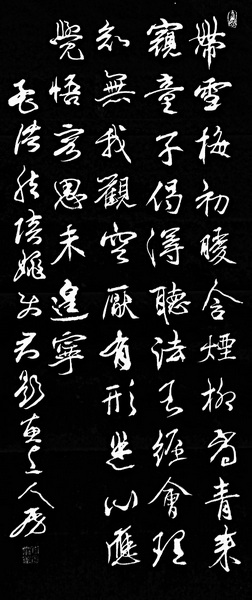 帶雪梅初暖含煙柳尚青來
窺童子偈得聽法王經會理
知無我觀空厭有形迷心應
覺悟客思未遑寧
孟浩然陪姚使君題惠上人房